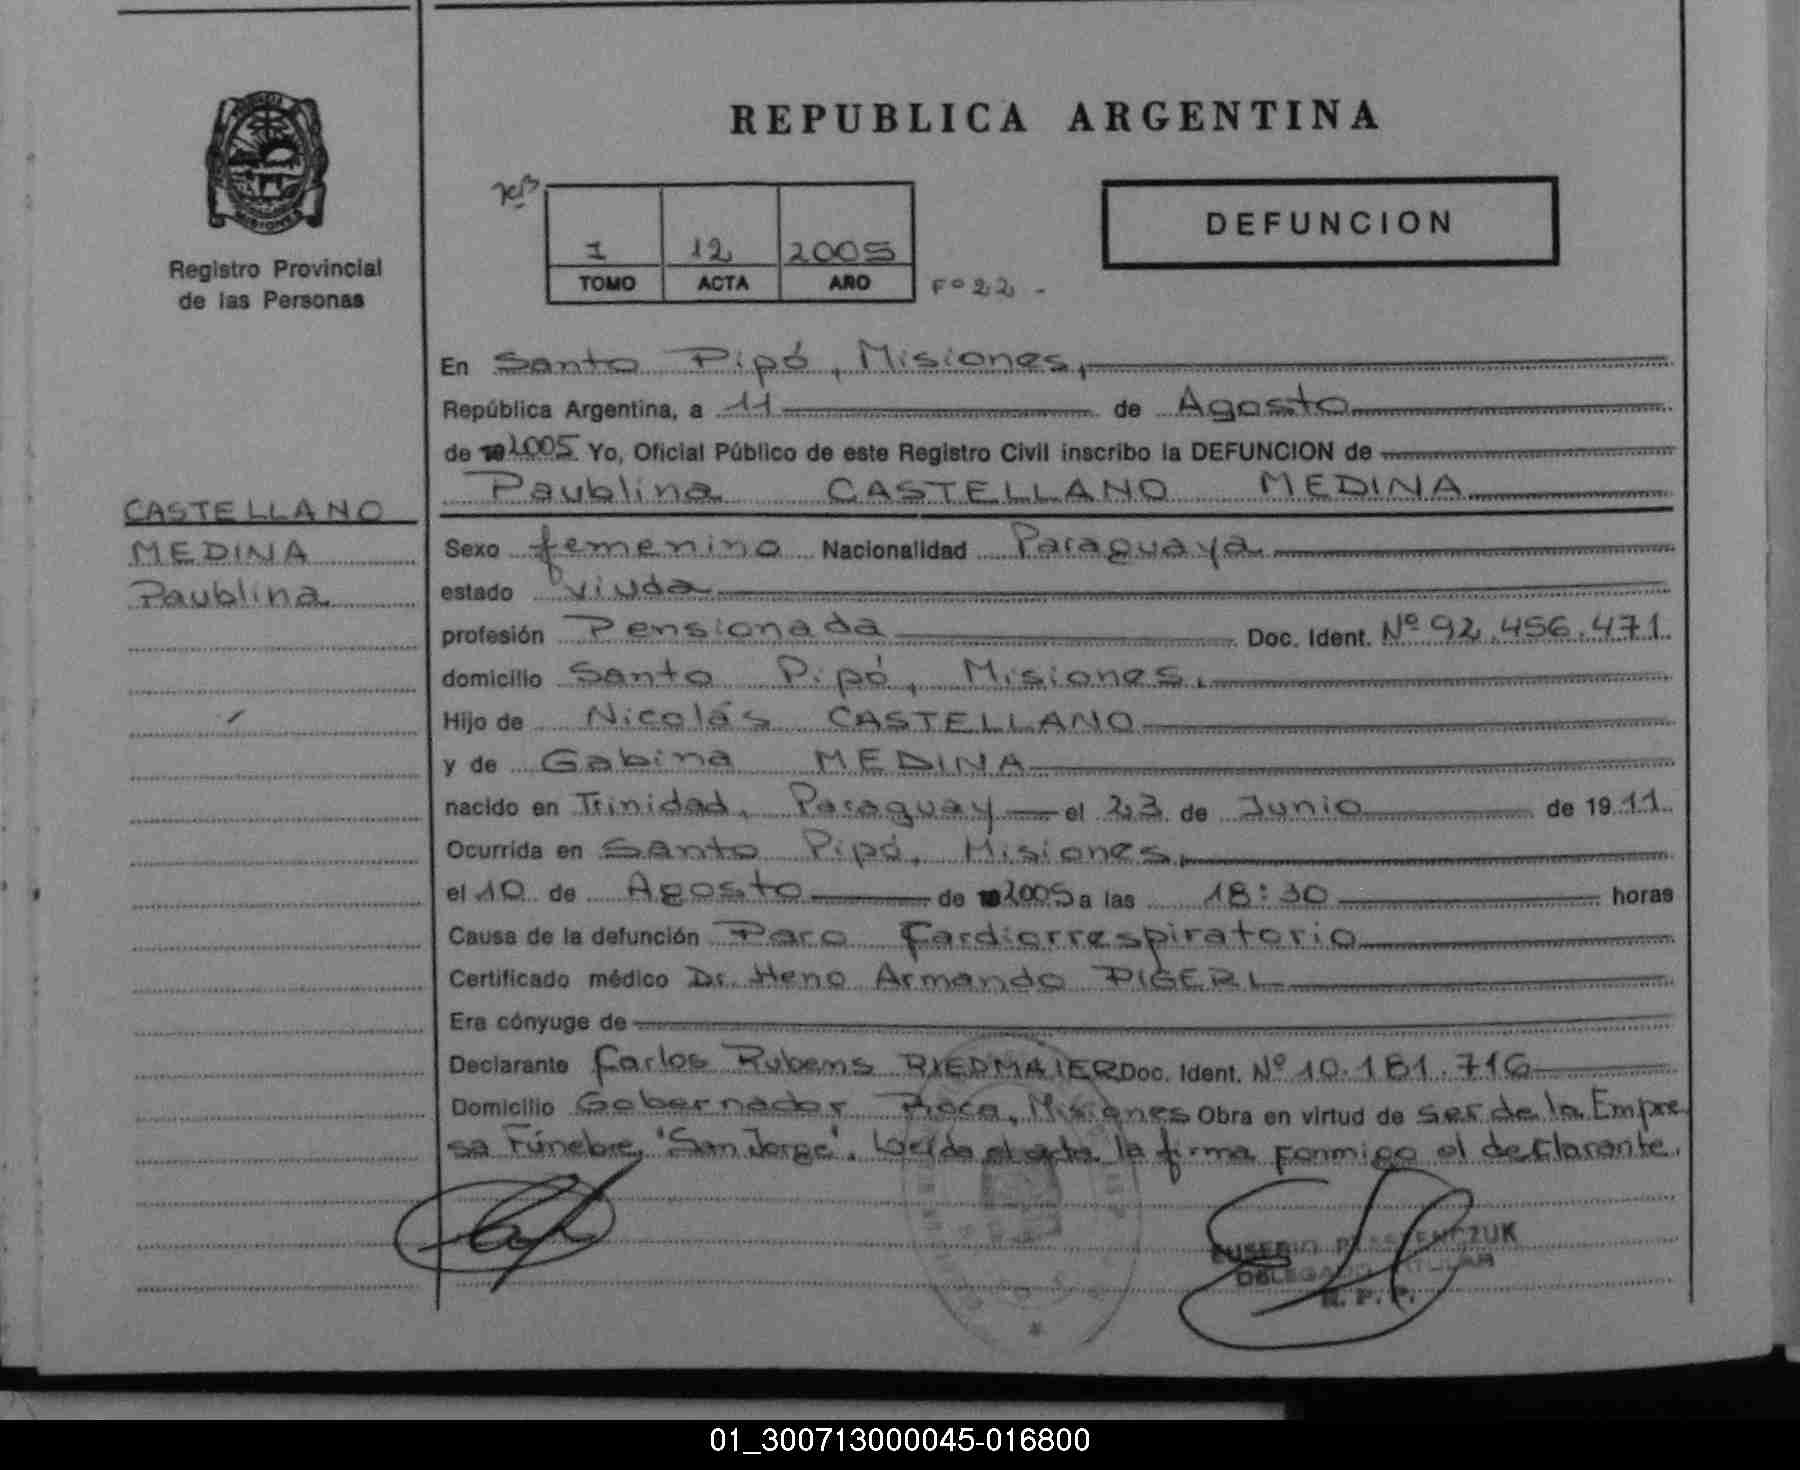 REPUBLICA ARGENTINA
1 12 2005
TOMO ACTA AÑO
Fº 22 -
DEFUNCION
Registro Provincial
de las Personas
CASTELLANO
MEDINA
Paublina
En Santo Pipó, Misiones,
República Argentina, a 11 de Agosto
de 2005 Yo, Oficial Público de este Registro Civil inscribo la DEFUNCION de
Paublina CASTELLANO MEDINA
Sexo femenino Nacionalidad Paraguaya
estado viuda
profesión Pensionada Doc. Ident. Nº 92.456.471
domicilio Santo Pipó, Misiones.
Hijo de Nicolás CASTELLANO
y de Gabina MEDINA
nacido en Trinidad, Paraguay el 23 de Junio de 1911
Ocurrida en Santo Pipó, Misiones,
el 10 de Agosto de 2005 a las 18:30 horas
Causa de la defunción Paro Cardiorrespiratorio
Certificado médico Dr. Heno Armando PIGERL
Era cónyuge de
Declarante Carlos Rubens RIEDMAIER Doc. Ident. Nº 10.181.716
Domicilio Gobernador Roca, Misiones Obra en virtud de ser de la Empre
sa Fúnebre, "San Jorge". Leída el acta la firma conmigo el declarante.
EUSEBIO
DELEGADO TITULAR
R. P. P.
01_300713000045-016800